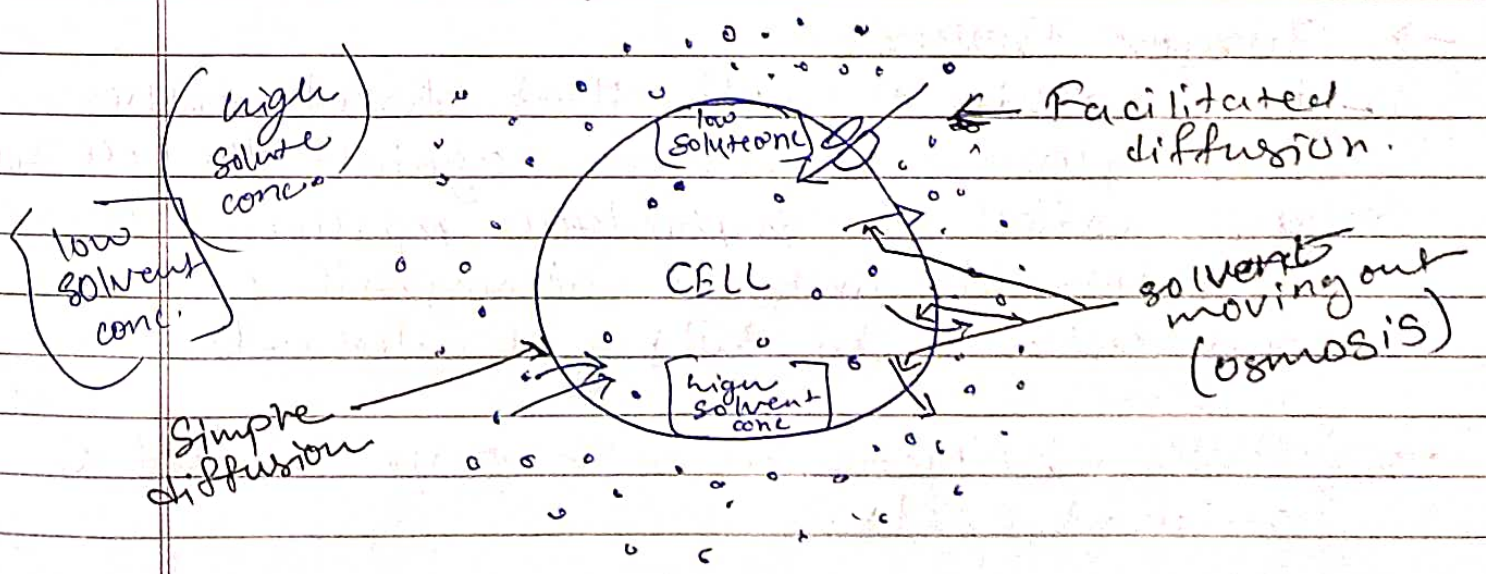 high
solute
conc.
low
solvent
conc.
low
solute conc
Facilitated
diffusion.
CELL
solvent
moving out
(osmosis)
high
solvent
conc
Simple
diffusion